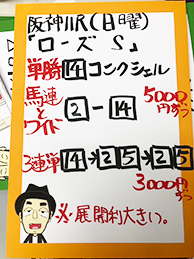 阪神11R(日曜)
「ローズS」
単勝 14 コンクシェル
馬連とワイド 2-14 5000円ずつ
3連単 14→2 5→2 5
3000円ずつ
※展開利大きい。